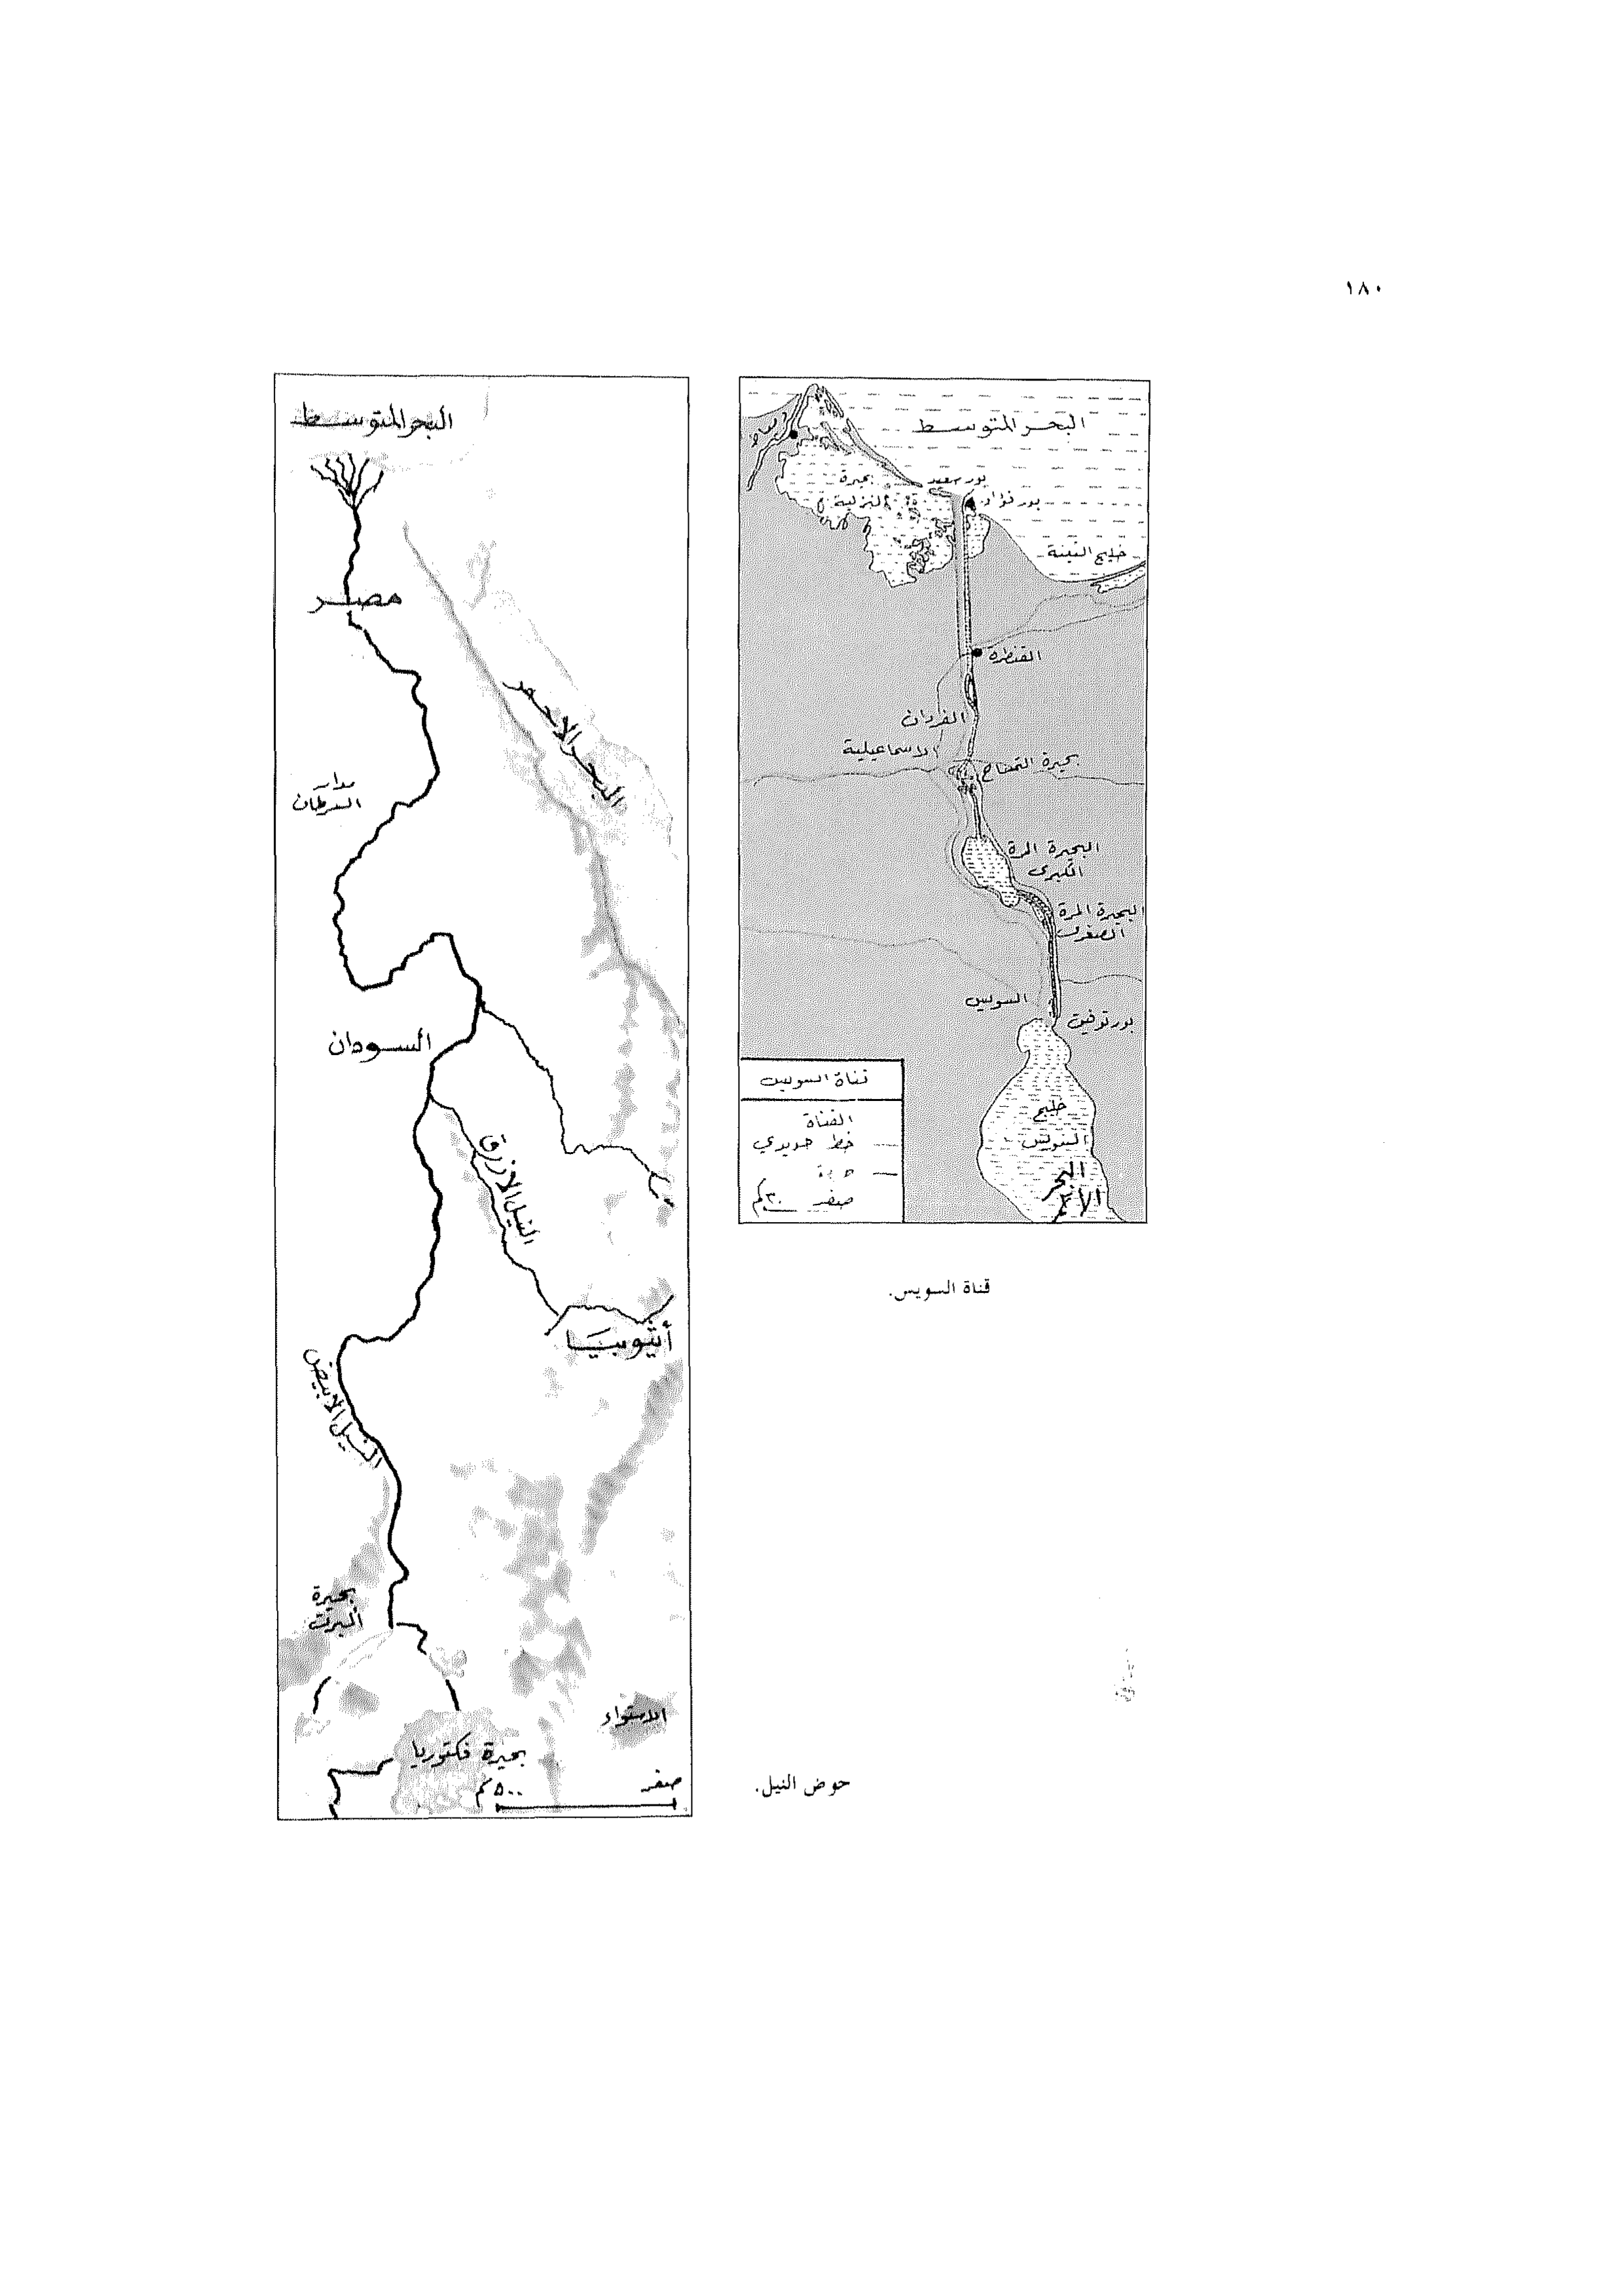 ١٨٠
البحر المتوسط
بور سعيد
بحيرة
المنزلية
بور فؤاد
خليج التينة
القنطرة
الفردان
الاسماعيلية
بحيرة التمساح
البحيرة المرة
الكبرى
البحيرة المرة
الصغرى
السويس
بور توفيق
خليج
السويس
البحر
الأحمر
قناة السويس
القناة
خط حديدي
صفر ٣٠ كم
قناة السويس.
البحر المتوسط
مصر
البحر الاحمر
مدار
السرطان
السودان
النيل الازرق
أثيوبيا
النيل الابيض
بحيرة
ألبرت
الاستواء
بحيرة فكتوريا
صفر ٥٠٠ كم
حوض النيل.